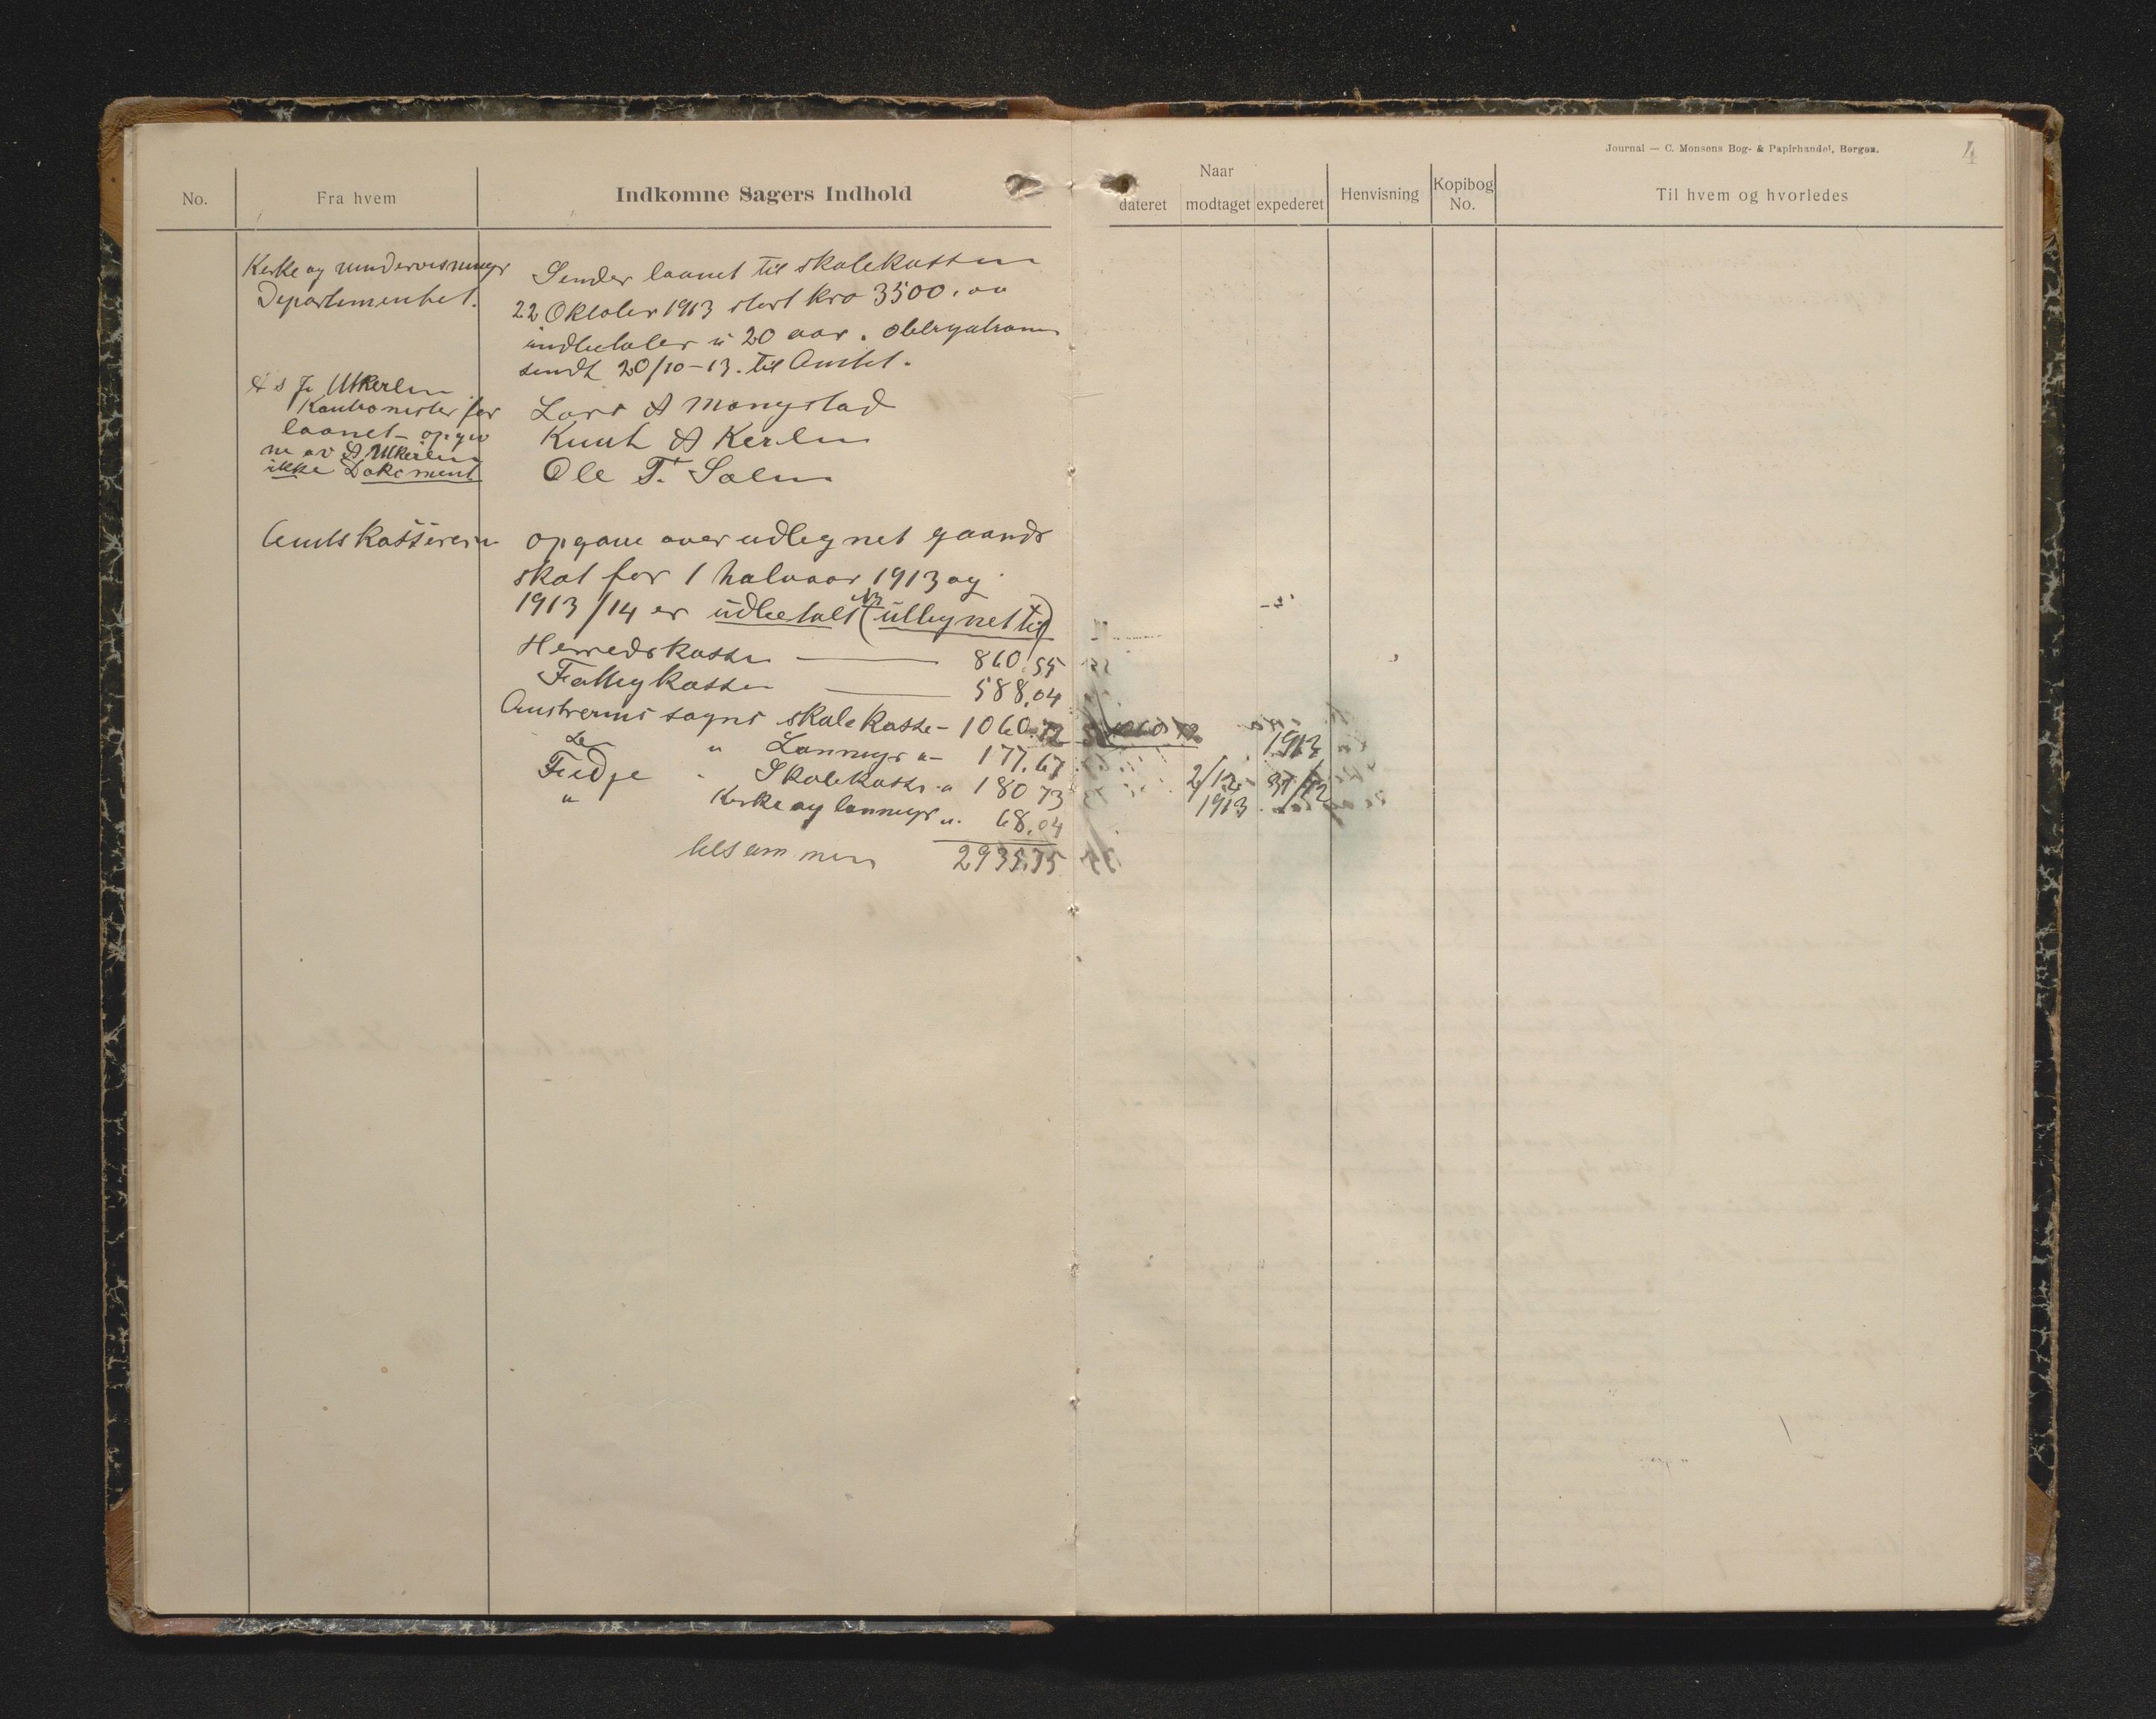 Journal — C. Monsens Bog- & Papirhandel, Bergen.
4
No.
Fra hvem
Indkomne Sagers Indhold
Naar
dateret
modtaget
expederet
Henvisning
Kopibog
No.
Til hvem og hvorledes
Kerke og undervisnings
Departementet.
Sender laanet til skolekassen
22 Oktober 1913 stort kro 3500.00
indbetaler i 20 aar. obligationen
sendt 20/10-13. til Amtet.
Utkerlen
Kautionister for
laanet - opgiv
ne av A Utkerlen
ikke Dokoment
Lars A Mongstad
Knut A Kerlen
Ole T. Solen
Amtskasseren
opgave over udlegnet
skat for 1 halvaar 1913 og
1913/14 er udbetalt (utlegnet til)
Herredskassen — 860.55
Fattigkassen — 588,04
Austreims sogns skolekasse - 1060.72
1060 72
" Lønnings " - 177.67
1913
Fedje " Skolekasse " 180 73
2/12 - 31/12
" Kerke og lønnings ". 68,04
1913
tilsammen 2935.75